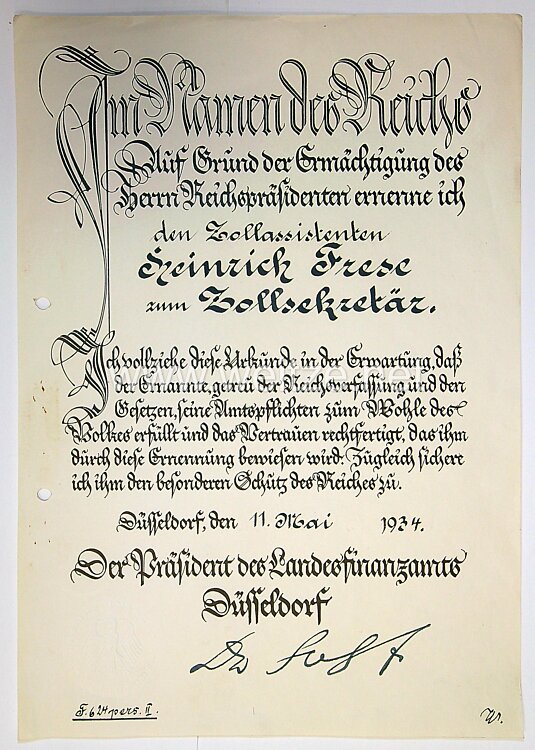 Im Namen des Reichs
Auf Grund der Ermächtigung des
Herrn Reichspräsidenten ernenne ich
den Zollassistenten
Heinrich Frese
zum Zollsekretär.
Ich vollziehe diese Urkunde in der Erwartung, daß
der Ernannte, getreu der Reichsverfassung und den
Gesetzen, seine Amtspflichten zum Wohle des
Volkes erfüllt und das Vertrauen rechtfertigt, das ihm
durch diese Ernennung bewiesen wird. Zugleich sichere
ich ihm den besonderen Schutz des Reiches zu.
Düsseldorf, den 11. Mai 1934.
Der Präsident des Landesfinanzamts
Düsseldorf